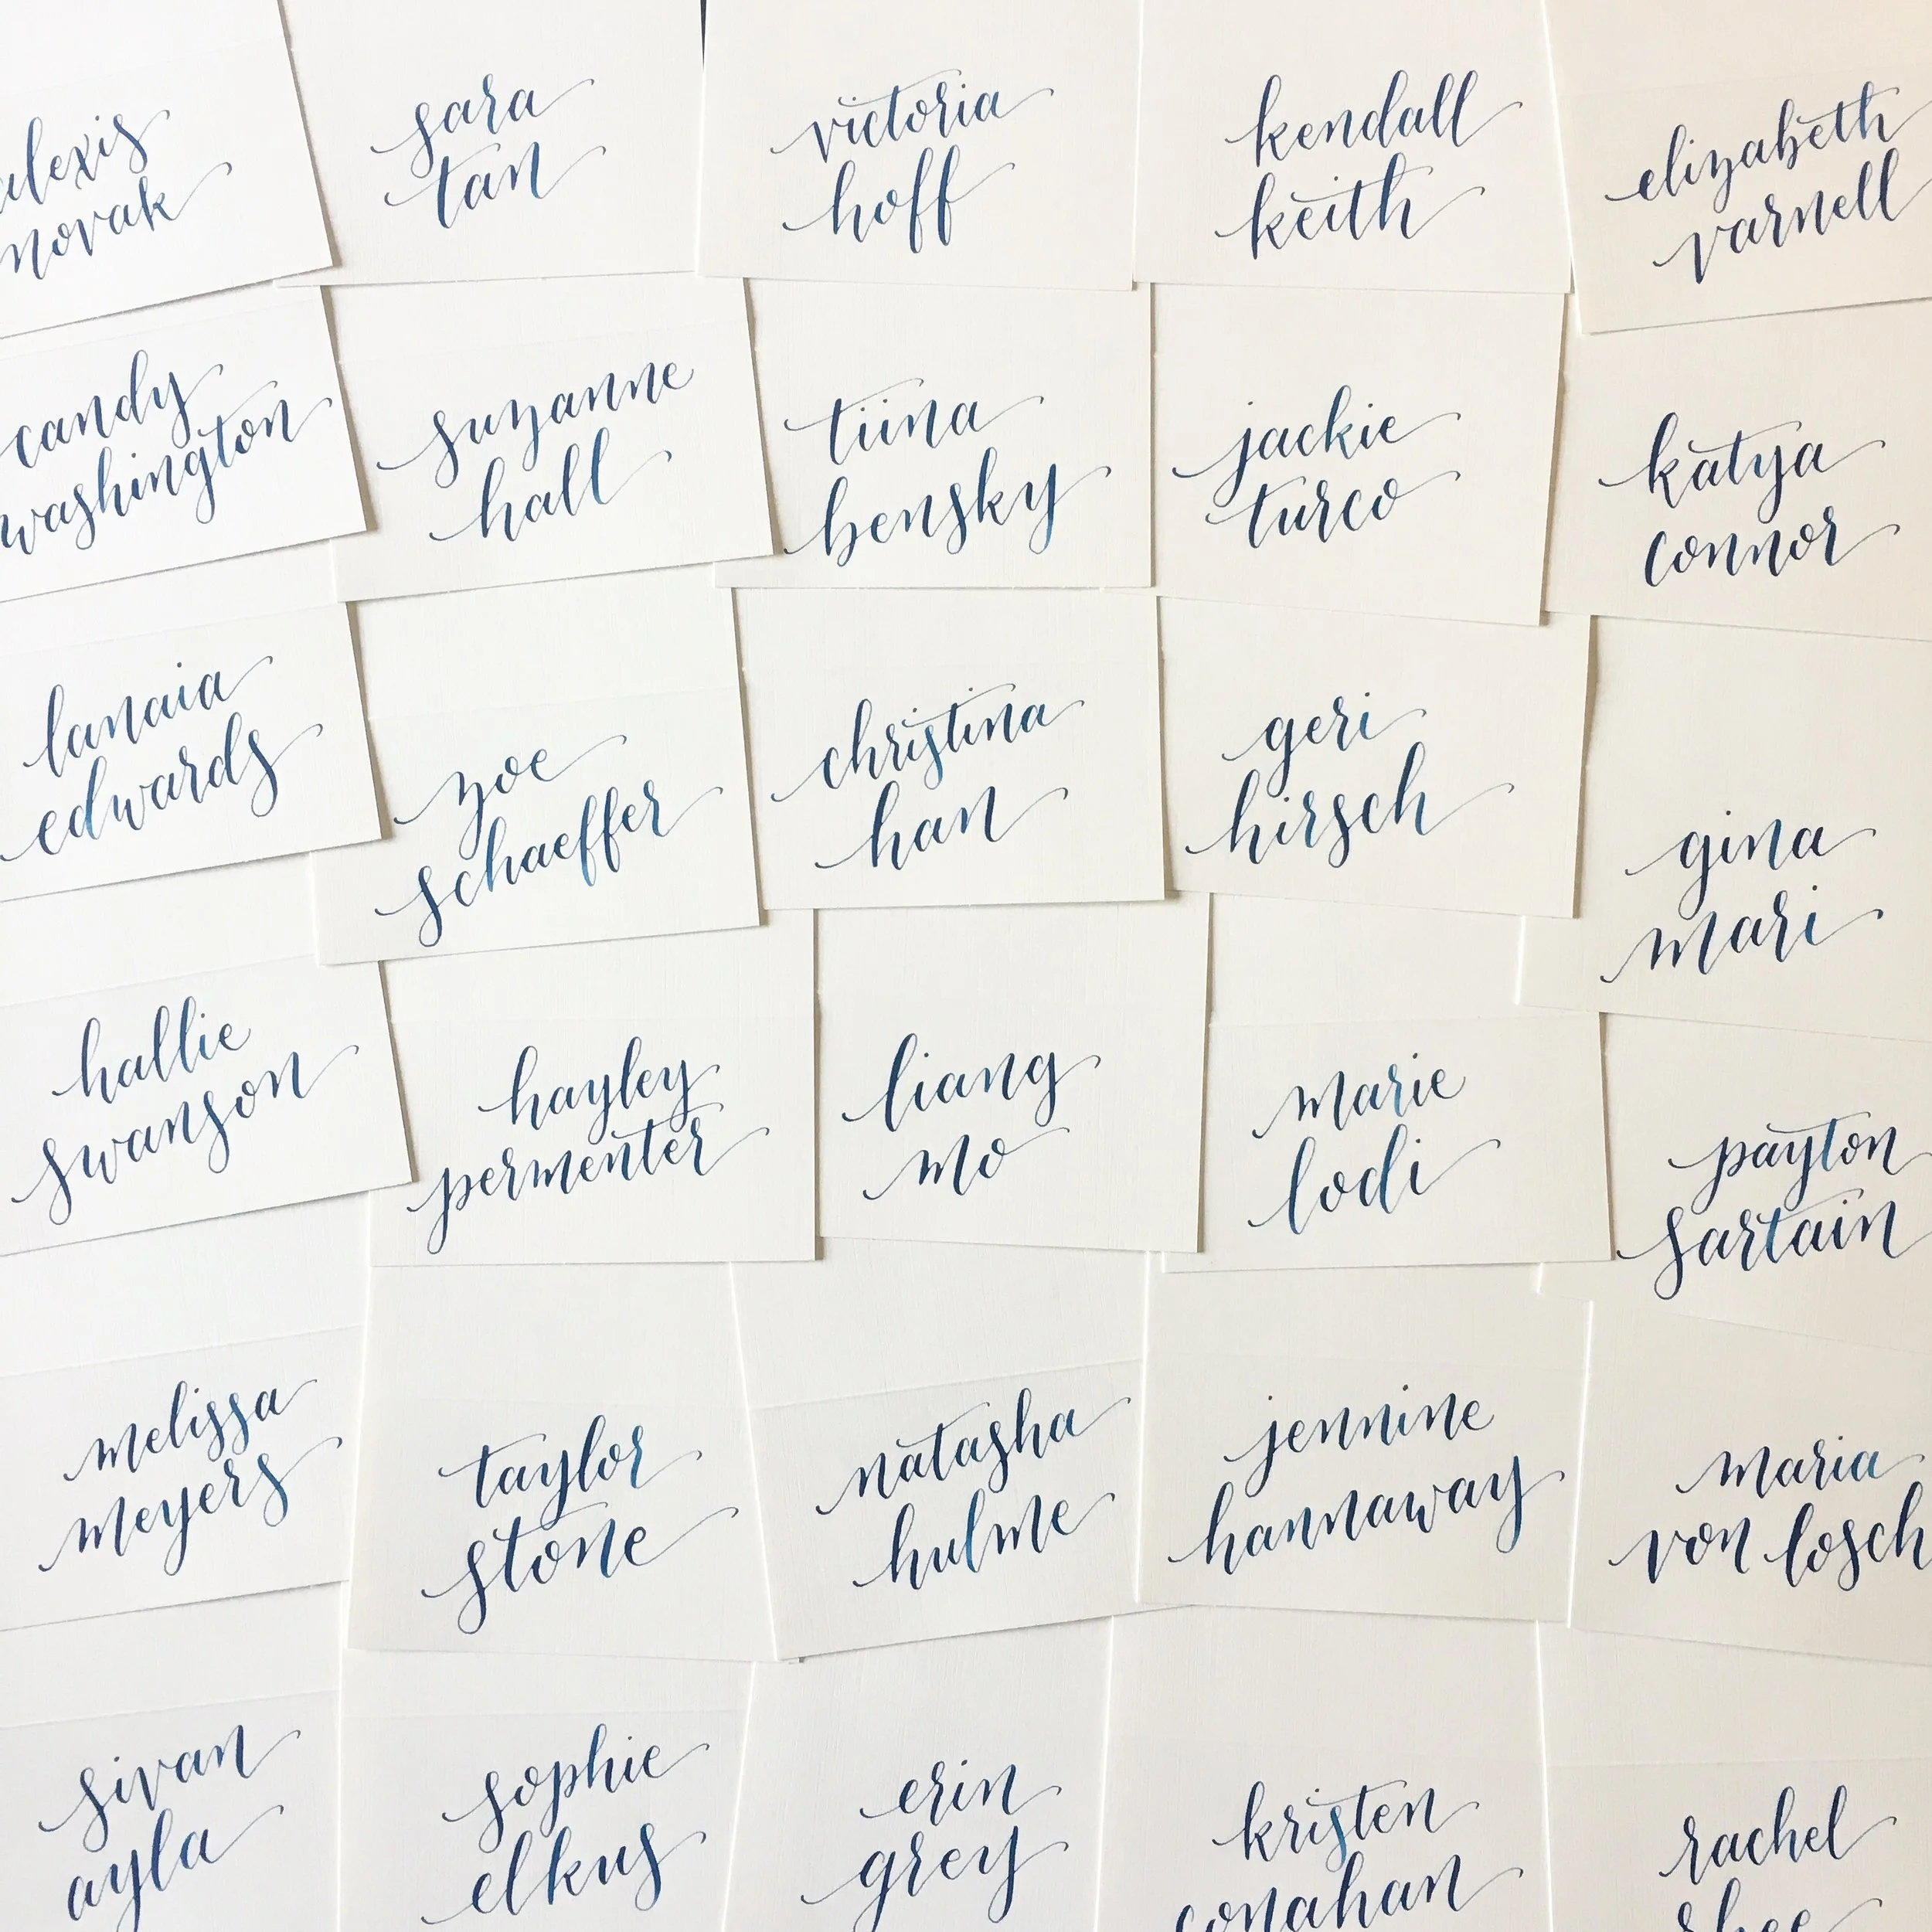 alexis
novak
sara
tan
victoria
hoff
kendall
keith
elizabeth
varnell
candy
washington
suzanne
hall
tiina
bensky
jackie
turco
katya
connor
lanaia
edwards
zoe
schaeffer
christina
han
geri
hirsch
gina
mari
hallie
swanson
hayley
permenter
liang
mo
marie
lodi
payton
sartain
melissa
meyers
taylor
stone
natasha
hulme
jennine
hannaway
maria
von losch
sivan
ayla
sophie
elkus
erin
grey
kristen
conahan
rachel